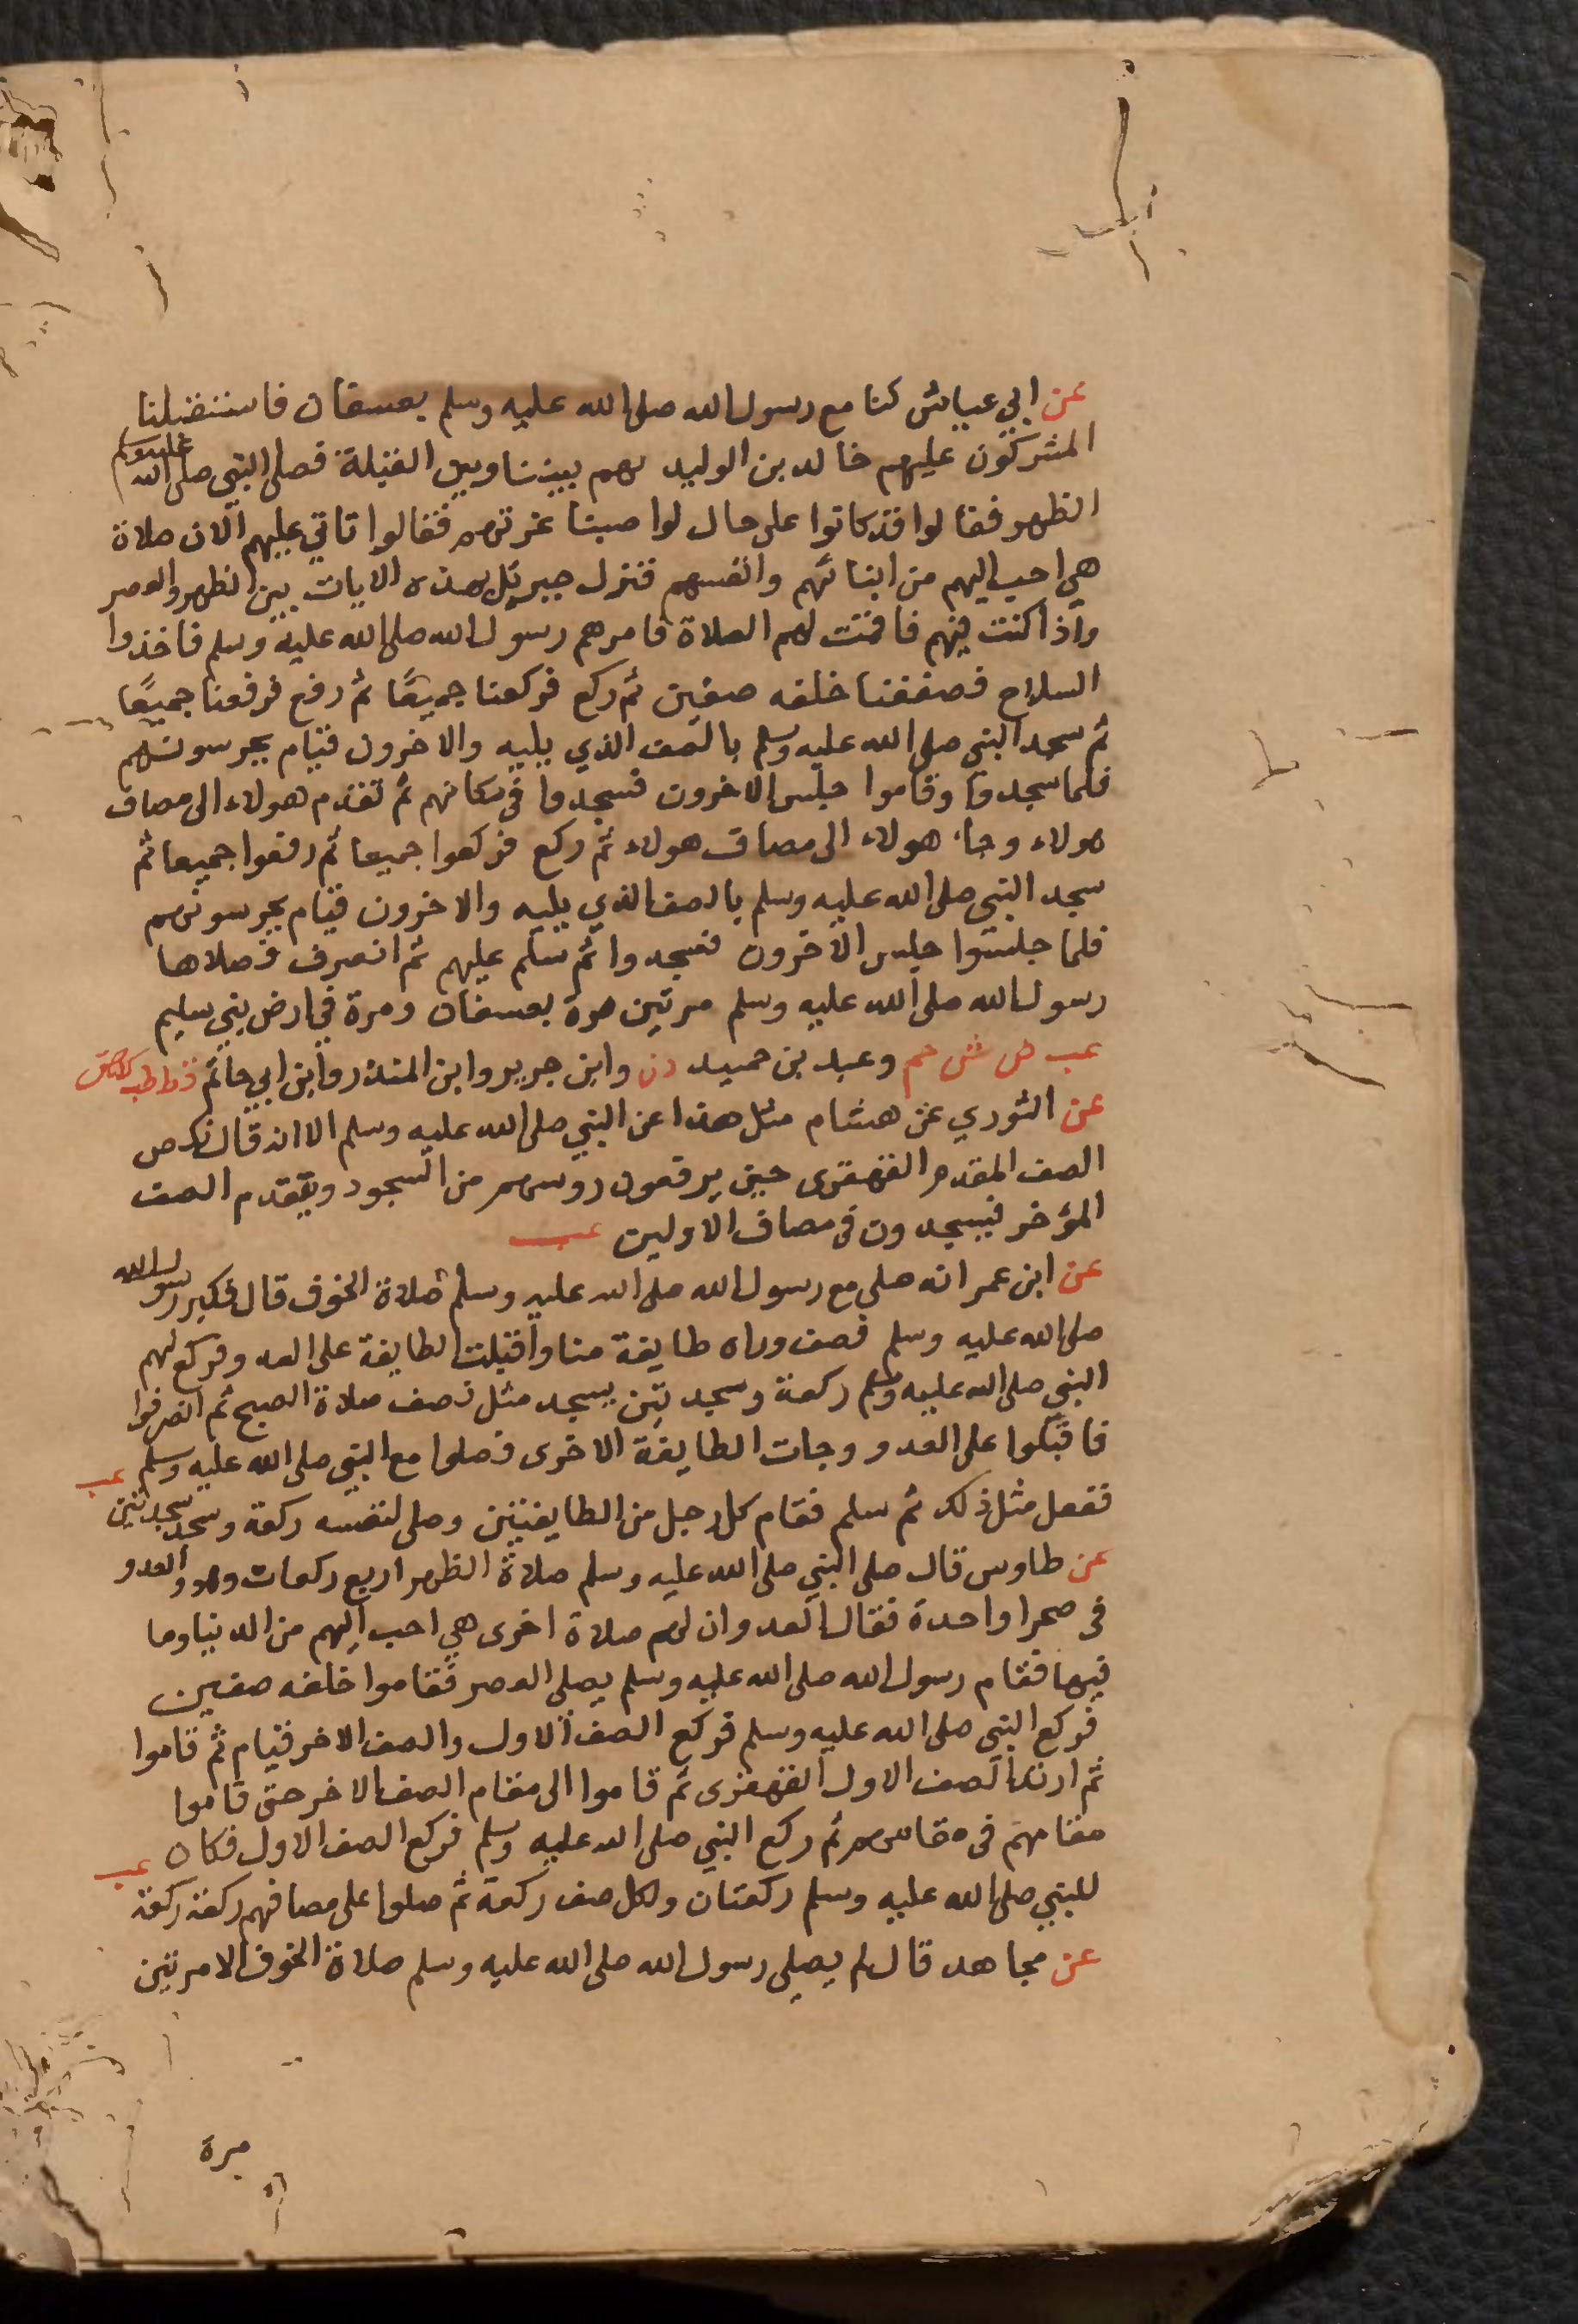 عن ابي عياش كنا مع رسول الله صلى الله عليه وسلم بعسفان فاستقبلنا
المشركون عليهم خالد بن الوليد وهم بيننا وبين القبلة فصلى النبي صلى الله عليه وسلم
الظهر فقالوا قد كانوا على حال لو اصبنا غرتهم فقالوا تاتي عليهم الان صلاة
هي احب اليهم من ابنائهم وانفسهم فنزل جبريل بهذه الايات بين الظهر والعصر
واذا كنت فيهم فاقمت لهم الصلاة فامرهم رسول الله صلى الله عليه وسلم فاخذوا
السلاح فصففنا خلفه صفين ثم ركع فركعنا جميعًا ثم رفع فرفعنا جميعًا
ثم سجد النبي صلى الله عليه وسلم بالصف الذي يليه والاخرون قيام يحرسونهم
فلما سجدوا وقاموا جلس الاخرون فسجدوا في مكانهم ثم تقدم هولاء الى مصاف
هولاء وجاء هولاء الى مصاف هولاء ثم ركع فركعوا جميعا ثم رفعوا جميعا ثم
سجد النبي صلى الله عليه وسلم بالصف الذي يليه والاخرون قيام يحرسونهم
فلما جلسوا جلس الاخرون فسجدوا ثم سلم عليهم ثم انصرف فصلاها
رسول الله صلى الله عليه وسلم مرتين مرة بعسفان ومرة في ارض بني سليم
عب ص ش حم وعبد بن حميد د ن وابن جرير وابن المنذر وابن ابي حاتم قط طب ك ق
عن الثوري عن هشام مثل هذا عن النبي صلى الله عليه وسلم الا انه قال نكص
الصف المقدم القهقرى حين يرفعون روسهم من السجود ويتقدم الصف
المؤخر فيسجدون في مصاف الاولين عب
عن ابن عمر انه صلى مع رسول الله صلى الله عليه وسلم صلاة الخوف قال فكبر رسول الله
صلى الله عليه وسلم فصف وراه طايفة منا واقبلت الطايفة على العدو فركع لهم
النبي صلى الله عليه وسلم ركعة وسجدتين يسجد مثل نصف صلاة الصبح ثم انصرفوا
فاقبلوا على العدو وجات الطايفة الاخرى فصلوا مع النبي صلى الله عليه وسلم عب
ففعل مثل ذلك ثم سلم فقام كل رجل من الطايفتين وصلى لنفسه ركعة وسجد سجدتين
عن طاوس قال صلى النبي صلى الله عليه وسلم صلاة الظهر اربع ركعات وهو والعدو
في صحرا واحدة فقال العدو ان لهم صلاة اخرى هي احب اليهم من الدنيا وما
فيها فقام رسول الله صلى الله عليه وسلم يصلي العصر فقاموا خلفه صفين
فركع النبي صلى الله عليه وسلم فركع الصف الاول والصف الاخر قيام ثم قاموا
ثم ارتد الصف الاول القهقرى ثم قاموا الى مقام الصف الاخر حتى قاموا
مقامهم في مقامهم ثم ركع النبي صلى الله عليه وسلم فركع الصف الاول فكان عب
للنبي صلى الله عليه وسلم ركعتان ولكل صف ركعة ثم صلوا على مصافهم ركعة ركعة
عن مجاهد قال لم يصلي رسول الله صلى الله عليه وسلم صلاة الخوف الا مرتين
مرة